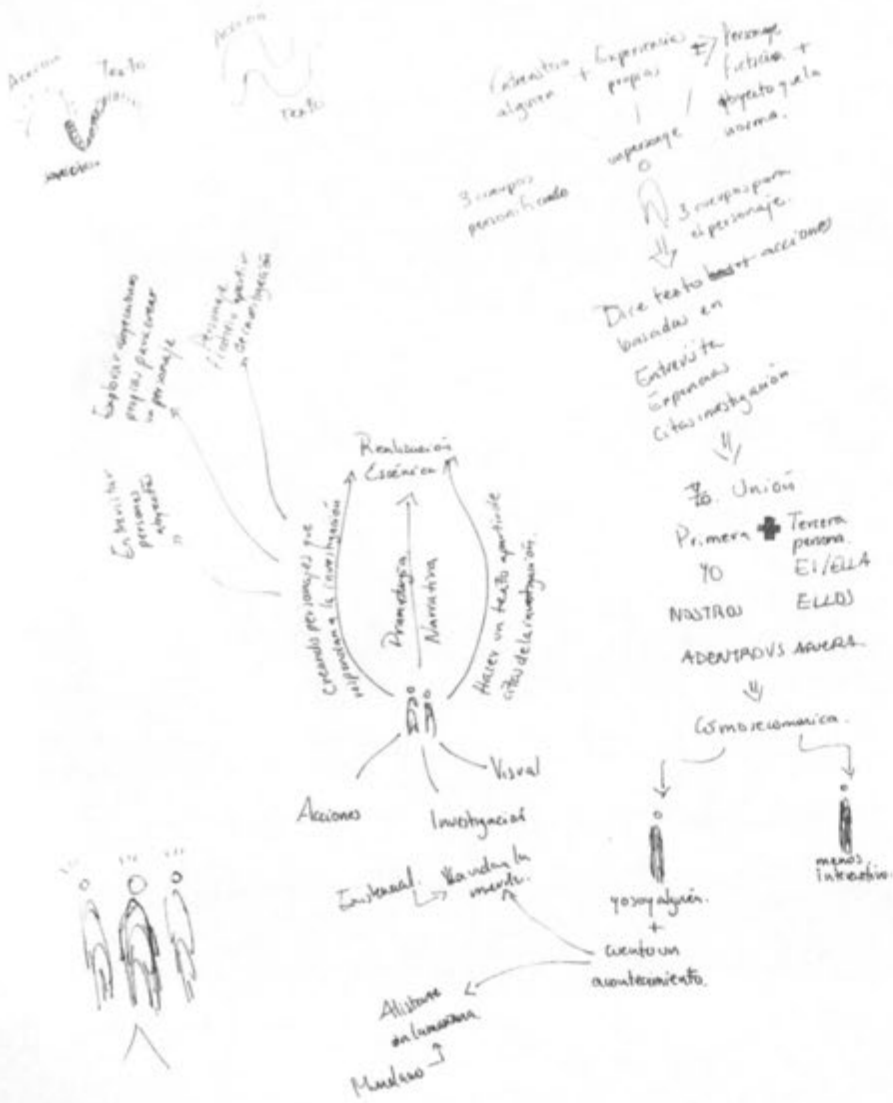 Acción
Texto
Acción
Texto
Entrevista
alguien
+ Experiencias
propias
Personaje
ficticio +
proyecto que la
norma.
un personaje
3 cuerpos
personificado
3 cuerpos para
el personaje.
Dice texto + acciones
basadas en
Entrevista
Experiencias
citas investigación
Unión
Primera + Tercera
persona.
YO
El/ELLA
NOSTROS
ELLOS
ADENTRO VS AFUERA
Cómo se comunica.
yo soy alguien.
+
cuento un
acontecimiento.
menos
interactivo.
Explorar
propias para crear
un personaje
Personaje
ficticio a partir
de investigación
Entrevistar
personas
Realización
Escénica
Creando personajes que
respondan a la investigación
Dramaturgia
Narrativa
Hacer un texto a partir de
citas de la investigación.
Acciones
Investigación
Visual
Existencial.
la vida y la
muerte.
Alistarse
en la mañana
Mundano